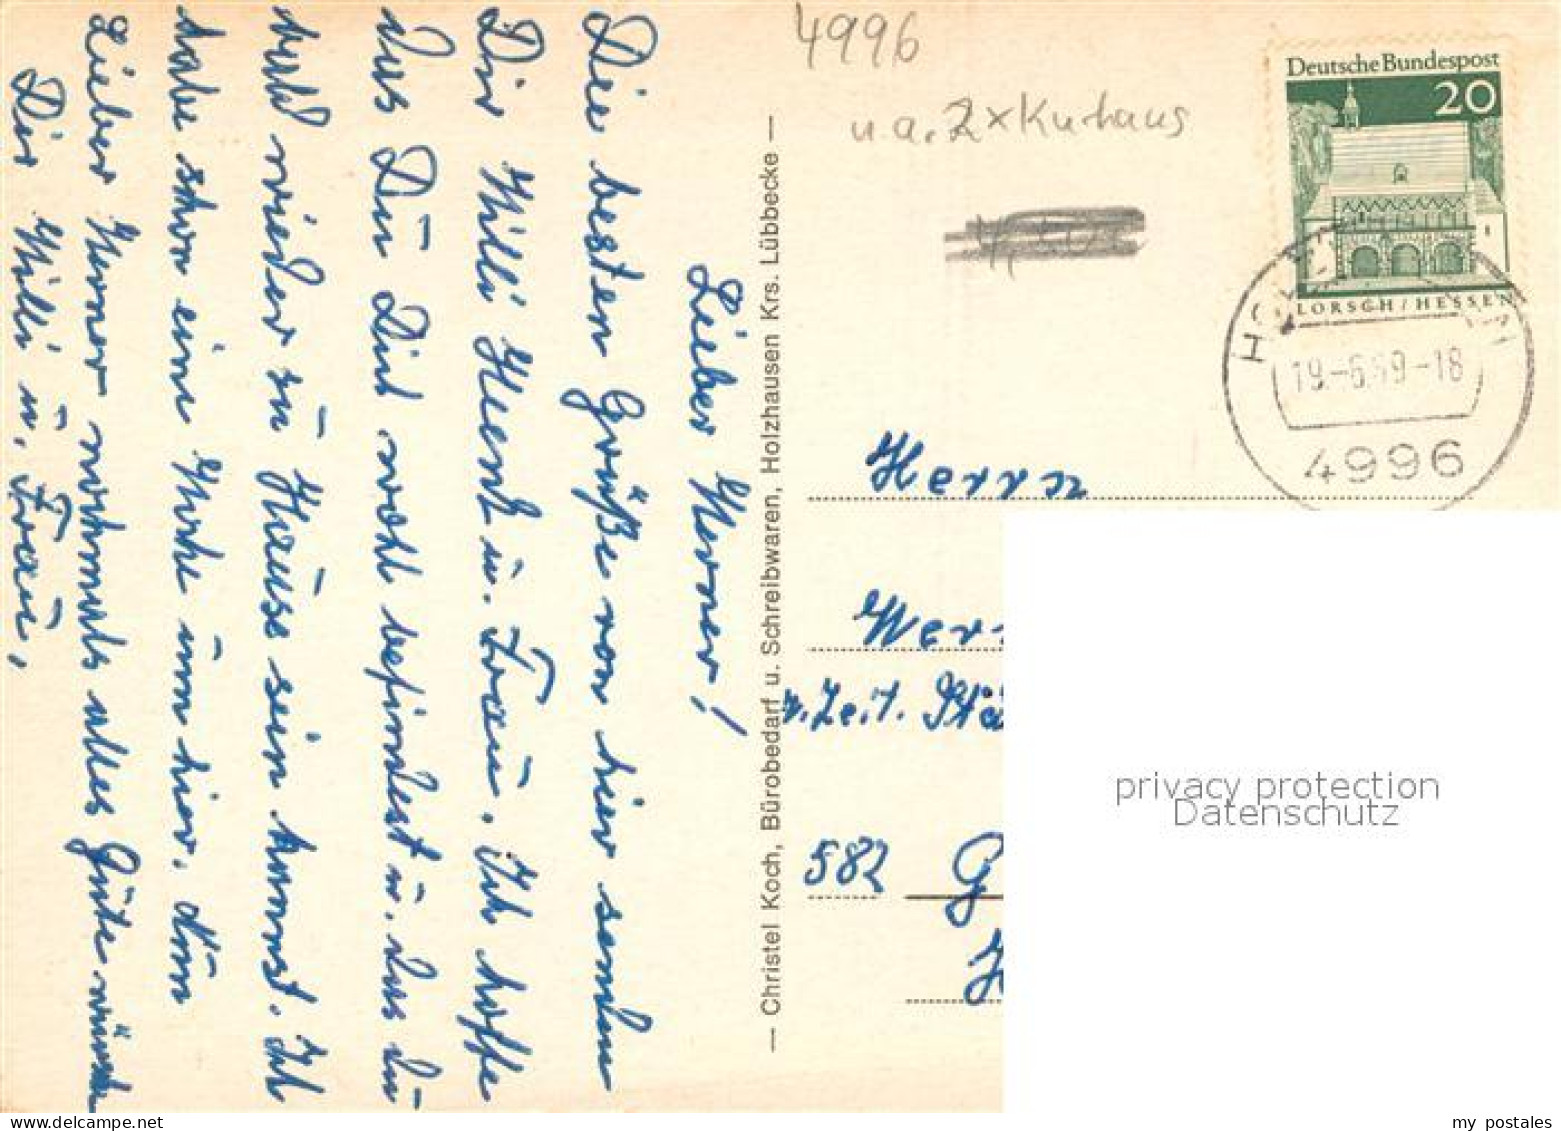 Lieber Werner!
Die besten Grüße von hier senden
Dir Willi Huck u. Frau. Ich hoffe
das Du Dich wohl befindest u. das Du
bald wieder zu Hause sein kannst. Ich
habe schon eine Woche um hier. Nun
Lieber Werner nochmals alles Gute wünschen
Dir Willi u. Frau,
— Christel Koch, Bürobedarf u. Schreibwaren, Holzhausen Krs. Lübbecke —
4996
u.a. 2x Kurhaus
Deutsche Bundespost
20
LORSCH/HESSEN
19.-6.69-18
4996
Herrn
Wer
z. Zeit. Stä
582 G
privacy protection
Datenschutz
my postales